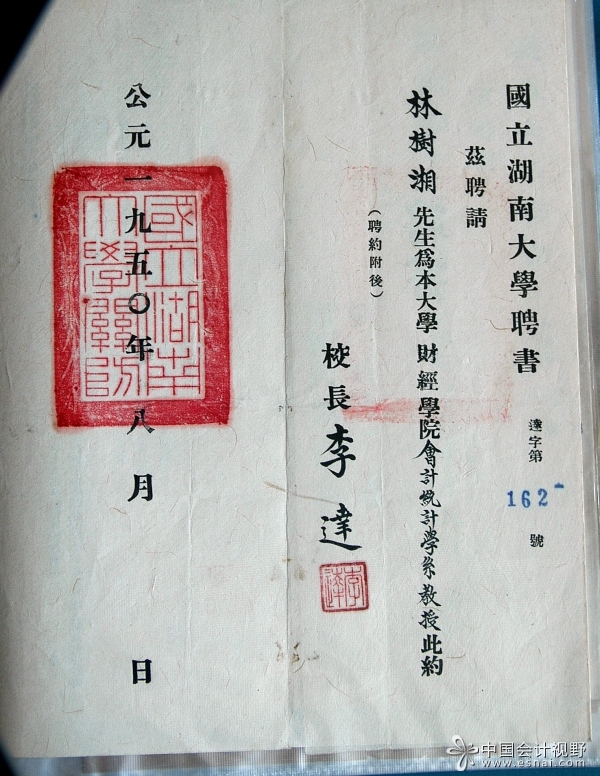 國立湖南大學聘書
達字第
162
號
茲聘請
林樹湘先生爲本大學財經學院會計統計學系教授此約
（聘約附後）
校長李達
李達
公元一九五〇年八月 日
國立湖南大學關防
中国会计视野
www.esnai.com